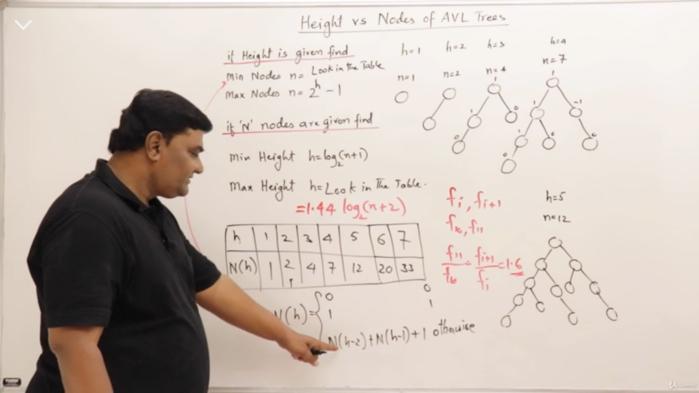 Height vs Nodes of AVL Trees
if Height is given find
Min Nodes n= Look in the Table
Max Nodes n= 2^h - 1
if 'N' nodes are given find
Min Height h=log₂(n+1)
Max Height h=Look in the Table.
=1.44 log₂(n+2)
h 1 2 3 4 5 6 7
N(h) 1 2 4 7 12 20 33
N(h)= { 0 0
1 1
N(h-2)+N(h-1)+1 otherwise
h=1 h=2 h=3 h=4
n=1 n=2 n=4 n=7
1
1 0
0
1
1 -1
1 0 0
0
fi, fi+1
f10, f11
f11/f10 = fi+1/fi = 1.6
h=5
n=12